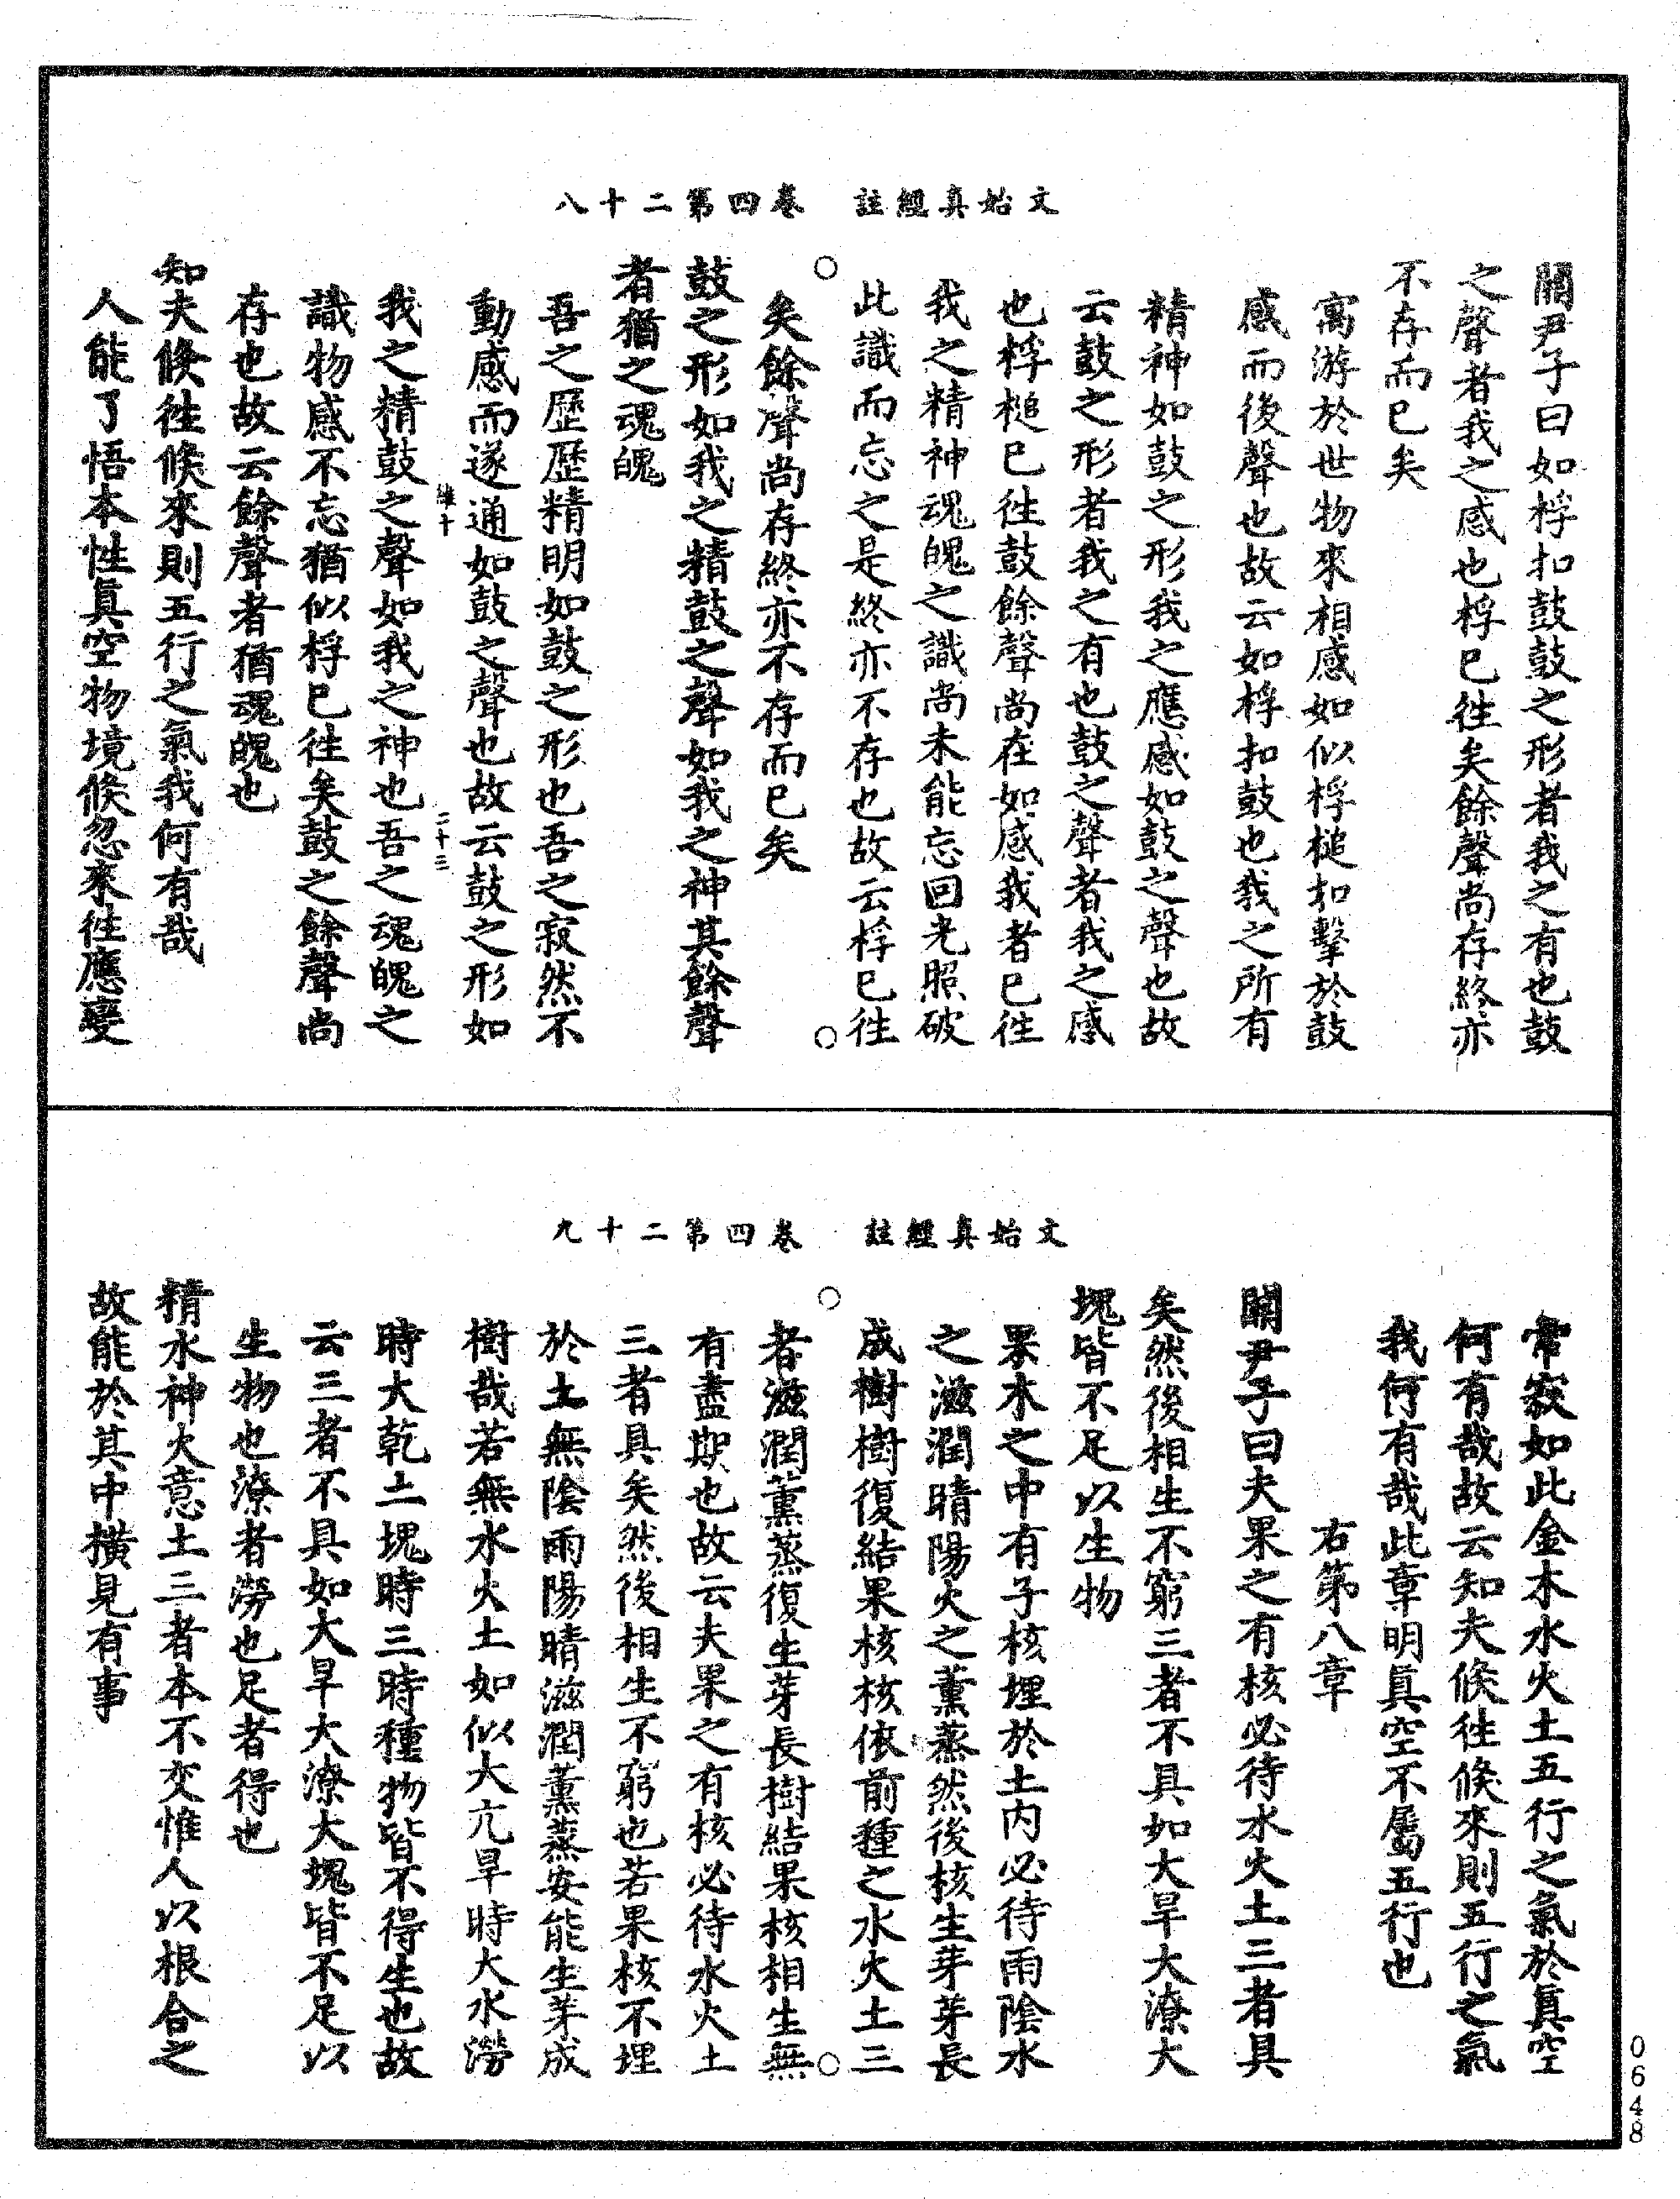 文始真經註　卷四第二十八
關尹子曰如桴扣鼓鼓之形者我之有也鼓
之聲者我之感也桴已徃矣餘聲尚存終亦
不存而已矣
寓游於世物來相感如似桴槌扣擊於鼓
感而後聲也故云如桴扣鼓也我之所有
精神如鼓之形我之應感如鼓之聲也故
云鼓之形者我之有也鼓之聲者我之感
也桴槌已徃鼓餘聲尚在如感我者已徃
我之精神魂魄之識尚未能忘回光照破
此識而忘之是終亦不存也故云桴已徃
矣餘聲尚存終亦不存而已矣
鼓之形如我之精鼓之聲如我之神其餘聲
者猶之魂魄
吾之歷歷精明如鼓之形也吾之寂然不
動感而遂通如鼓之聲也故云鼓之形如
維十
二十三
我之精鼓之聲如我之神也吾之魂魄之
識物感不忘猶似桴已徃矣鼓之餘聲尚
存也故云餘聲者猶魂魄也
知夫倏徃倏來則五行之氣我何有哉
人能了悟本性真空物境倏忽來徃應變
文始真經註　卷四第二十九
常寂如此金木水火土五行之氣於真空
何有哉故云知夫倏徃倏來則五行之氣
我何有哉此章明真空不屬五行也
右第八章
關尹子曰夫果之有核必待水火土三者具
矣然後相生不窮三者不具如大旱大潦大
塊皆不足以生物
果木之中有子核埋於土内必待雨陰水
之滋潤晴陽火之薰蒸然後核生芽芽長
成樹樹復結果核核依前種之水火土三
者滋潤薰蒸復生芽長樹結果核相生無
有盡期也故云夫果之有核必待水火土
三者具矣然後相生不窮也若果核不埋
於土無陰雨陽晴滋潤薰蒸安能生芽成
樹哉若無水火土如似大亢旱時大水澇
時大乾土塊時三時種物皆不得生也故
云三者不具如大旱大潦大塊皆不足以
生物也潦者澇也足者得也
精水神火意土三者本不交惟人以根合之
故能於其中橫見有事
0648